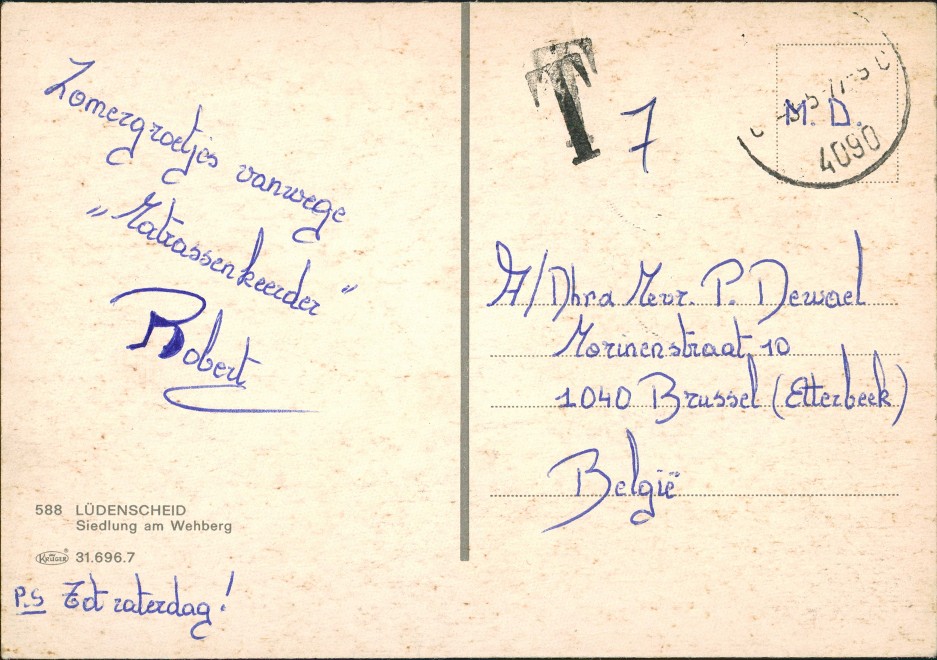 Zomergroetjes vanwege
„Matrassenkeerder”
Robert
588 LÜDENSCHEID
Siedlung am Wehberg
KRÜGER 31.696.7
P.S Tot zaterdag!
T 7
M. D.
4090
A/Dhr.a Mevr. P. Dewael
Morinenstraat, 10
1040 Brussel (Etterbeek)
België